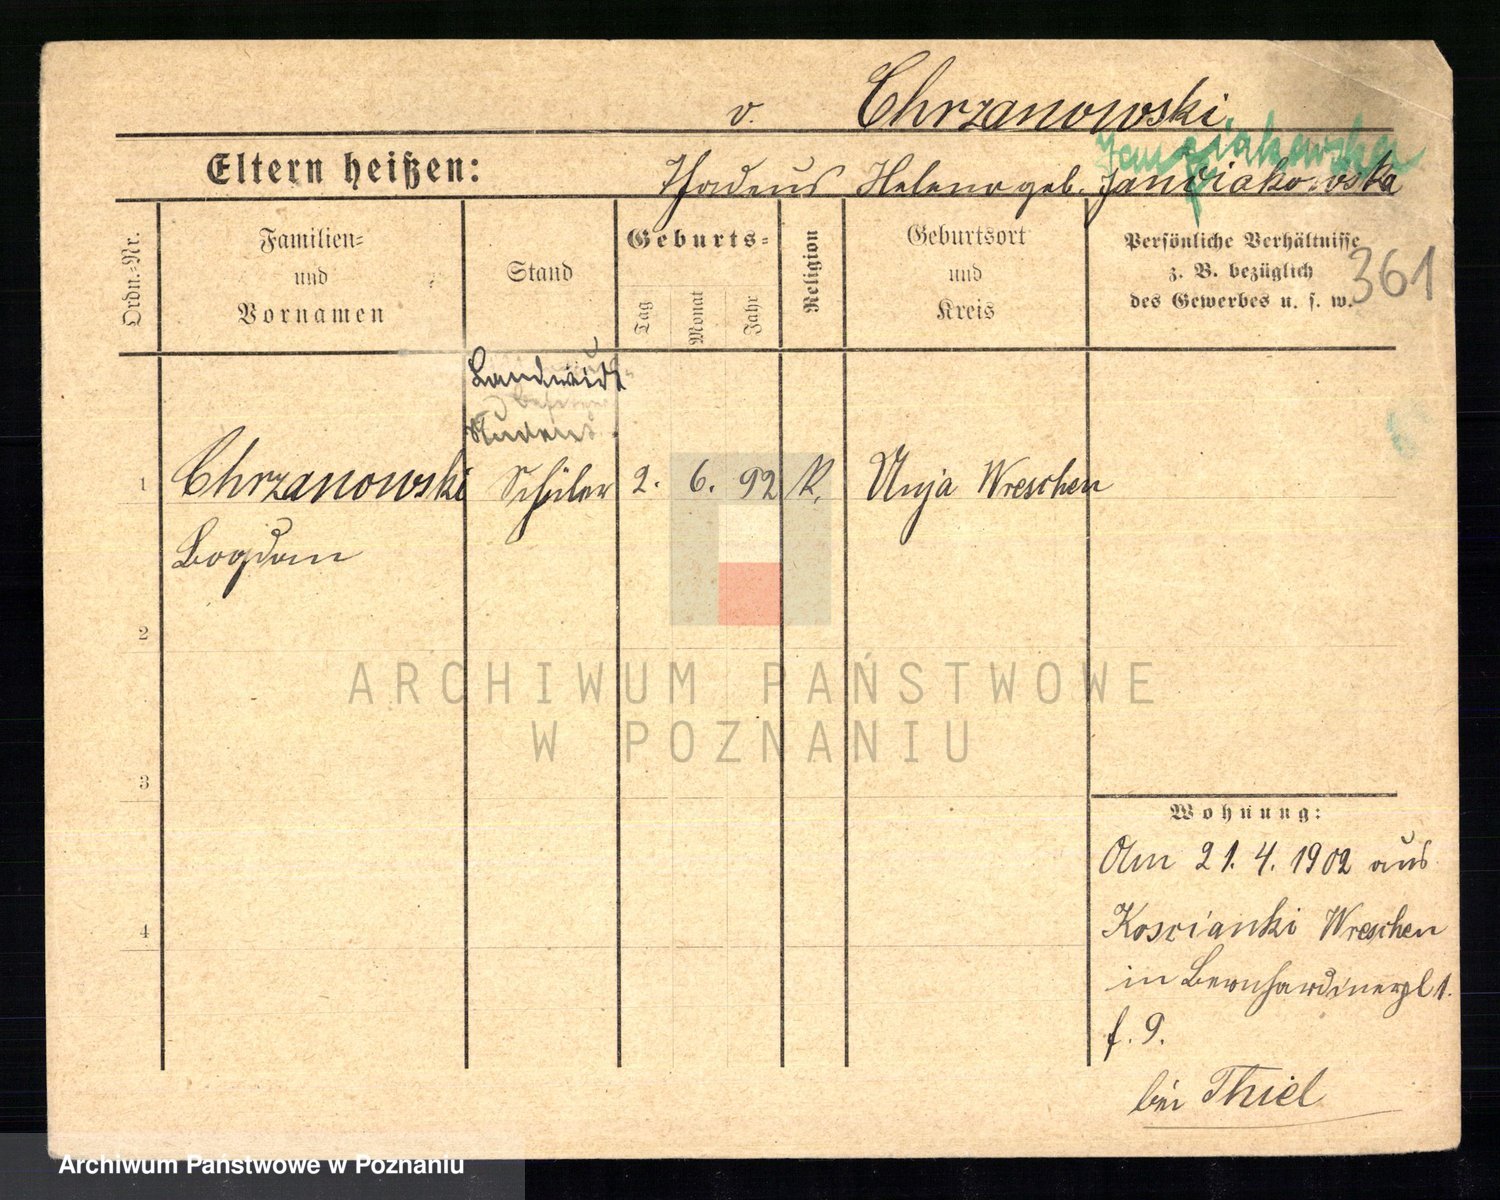 v. Chrzanowski
Eltern heißen: Thadeus Helena geb. Janviakowska
Ordn.-Nr.
Familien-
und
Vornamen
Stand
Geburts-
Tag
Monat
Jahr
Religion
Geburtsort
und
Kreis
Persönliche Verhältnisse
z. B. bezüglich
des Gewerbes u. s. w.
361
Landwirt
Student
1 Chrzanowski Schüler 2. 6. 92 K. Unja Wreschen
Bogdan
2
ARCHIWUM PAŃSTWOWE
W POZNANIU
3
4
Wohnung:
Am 21. 4. 1902 aus
Koscianki Wreschen
in Bernhardinerpl 1.
f. 9.
bei Thiel
Archiwum Państwowe w Poznaniu